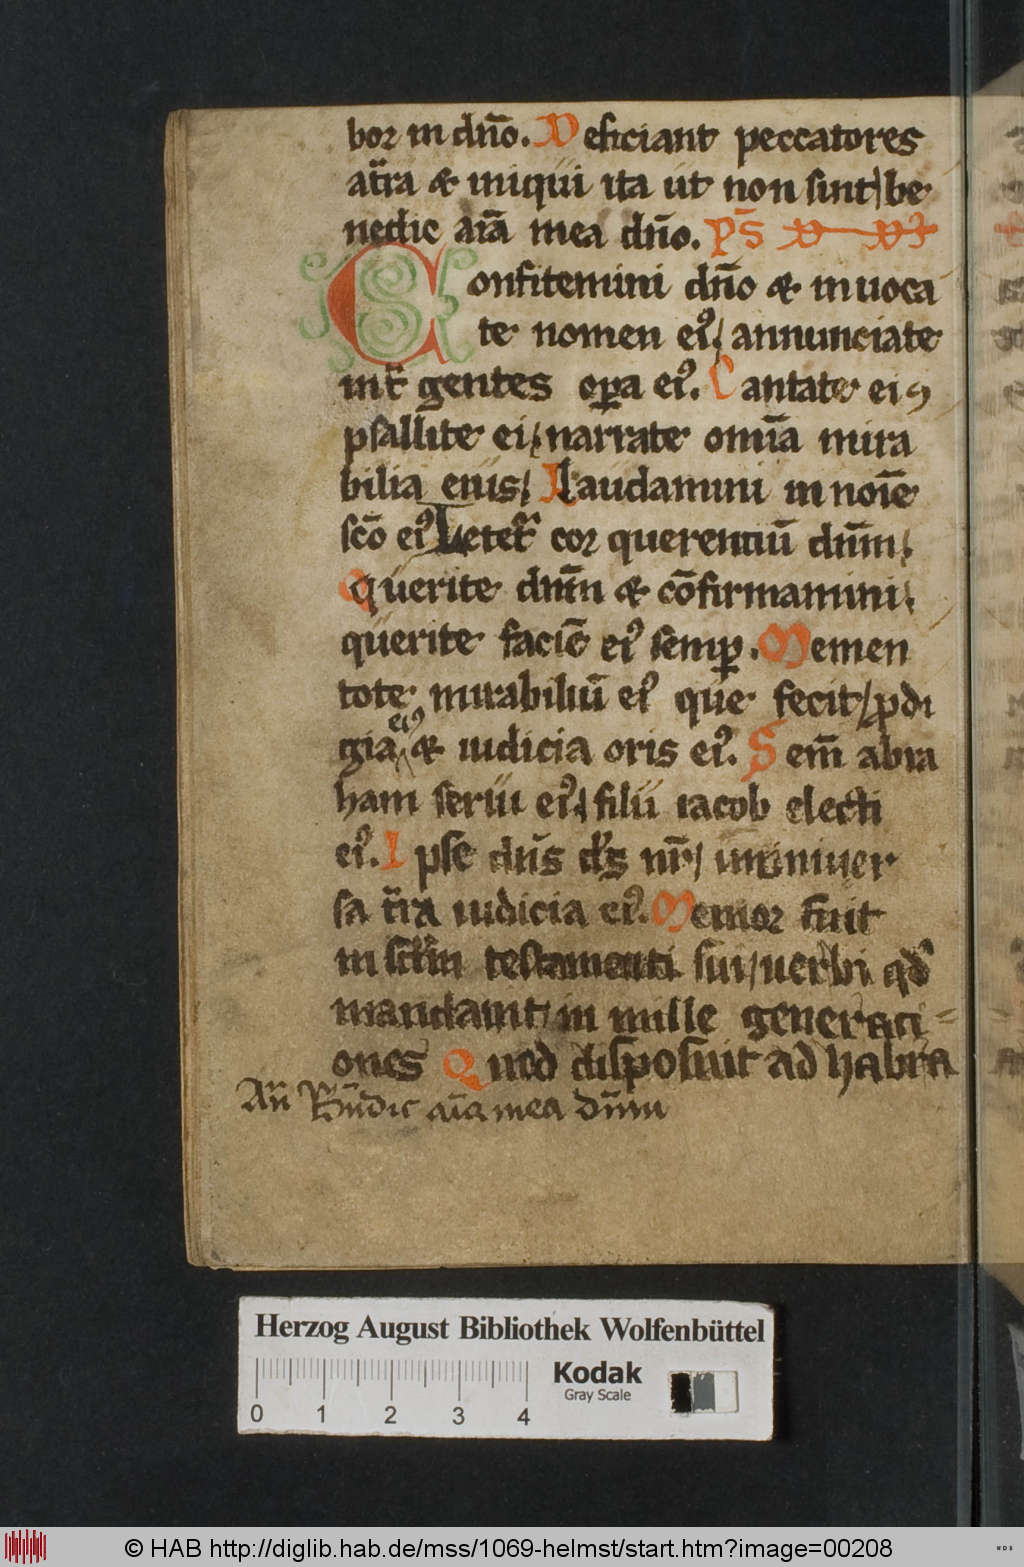 bor in dño. Deficiant peccatores
a tr̃a & iniqui ita ut non sint / be
nedic aĩa mea dño. ps̃
Confitemini dño & inuoca
te nomen eiꝰ / annunciate
int̃ gentes oꝑa eiꝰ. Cantate ei &
psallite ei / narrate omĩa mira
bilia eius / Laudamini in noĩe
sc̃o eiꝰ Letet᷑ cor querentiũ dñm /
Querite dñm & cõfirmamini /
querite faciẽ eiꝰ semꝑ. Memen
tote mirabiliũ eiꝰ que fecit / ꝓdi
gia eiꝰ & iudicia oris eiꝰ. Sem̃ abra
ham serui eiꝰ / filii iacob electi
eiꝰ. Ipse dñs ds̃ nr̃ / in uniuer
sa tr̃a iudicia eiꝰ. Memor fuit
in sc̃lm testamenti sui / uerbi qd̃
mandauit in mille generati=
ones Quod disposuit ad habra
Añ Bñdic aĩa mea dñm
Herzog August Bibliothek Wolfenbüttel
Kodak
Gray Scale
0 1 2 3 4
© HAB http://diglib.hab.de/mss/1069-helmst/start.htm?image=00208